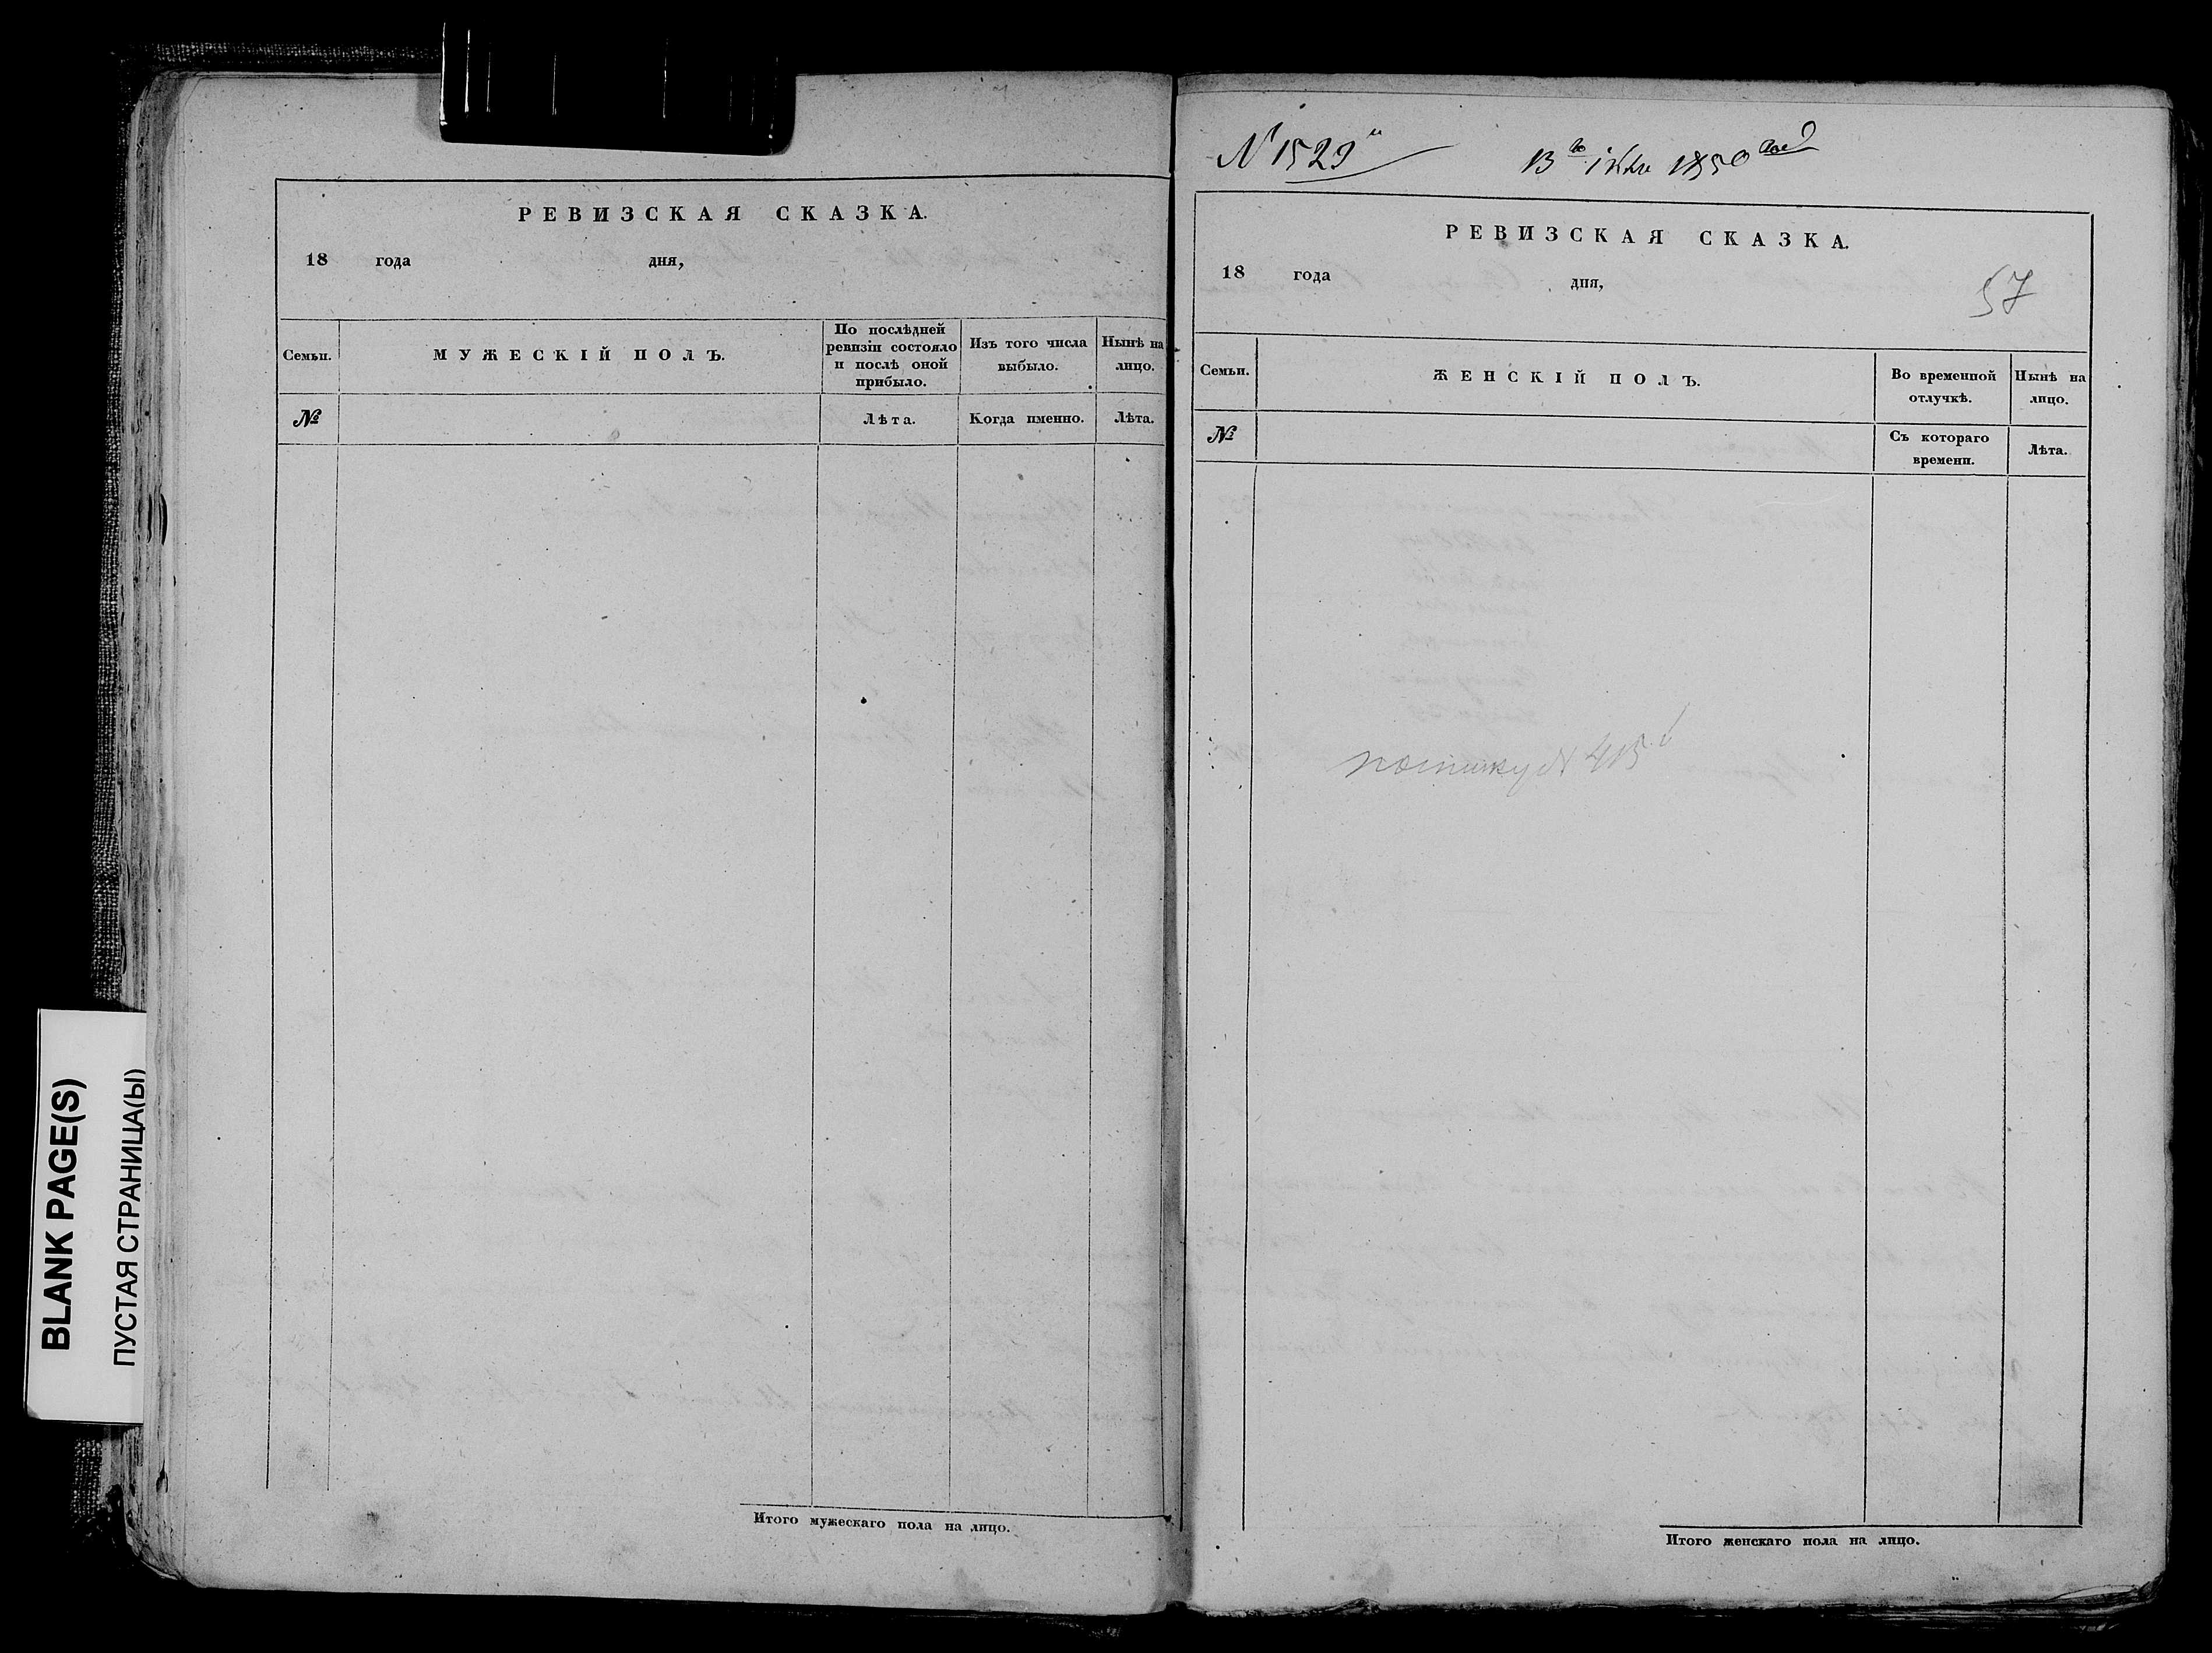 BLANK PAGE(S)
ПУСТАЯ СТРАНИЦА(Ы)
РЕВИЗСКАЯ СКАЗКА.
18 года дня,
Семьи.
МУЖЕСКІЙ ПОЛЪ.
По послѣдней
ревизіи состояло
и послѣ оной
прибыло.
Изъ того числа
выбыло.
Нынѣ на
лицо.
№
Лѣта.
Когда именно.
Лѣта.
Итого мужескаго пола на лицо.
N 1529
13 1850
РЕВИЗСКАЯ СКАЗКА.
18 года дня,
57
Семьи.
ЖЕНСКІЙ ПОЛЪ.
Во временной
отлучкѣ.
Нынѣ на
лицо.
№
Съ котораго
времени.
Лѣта.
Итого женскаго пола на лицо.